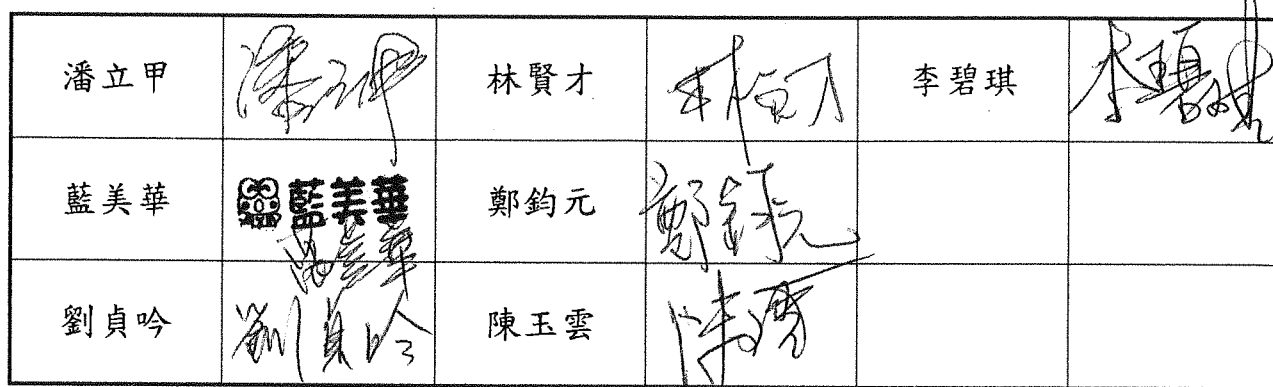 潘立甲 潘立甲 林賢才 林賢才 李碧琪 李碧琪
藍美華 藍美華 鄭鈞元 鄭鈞元
藍美華
劉貞吟 劉貞吟 陳玉雲